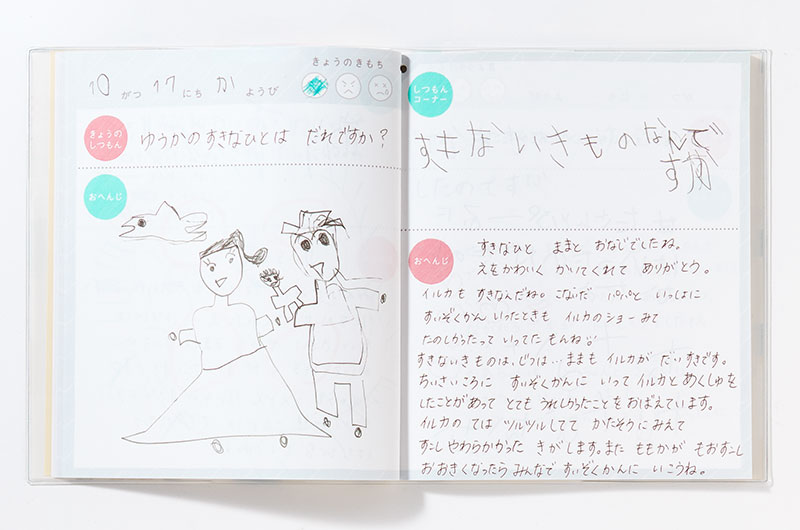 きょうのきもち
10 がつ 17 にち か ようび
きょうの
しつもん
ゆうかのすきなひとは だれですか?
おへんじ
しつもん
コーナー
すきないきものなんで
すか
おへんじ
すきなひと ままと おなじでしたね。
えをかわいく かいてくれて ありがとう。
イルカも すきなんだね。こないだ パパと いっしょに
すいぞくかん いったときも イルカのショーみて
たのしかったって いってたもんね
すきないきものは、じつは…ままも イルカが だいすきです。
ちいさいころに すいぞくかんに いって イルカと あくしゅを
したことがあって とても うれしかったことを おぼえています。
イルカの ては ツルツルしてて かたそうにみえて
すこし やわらかかった きがします。また ももかが もおすこし
おおきくなったら みんなで すいぞくかんに いこうね。